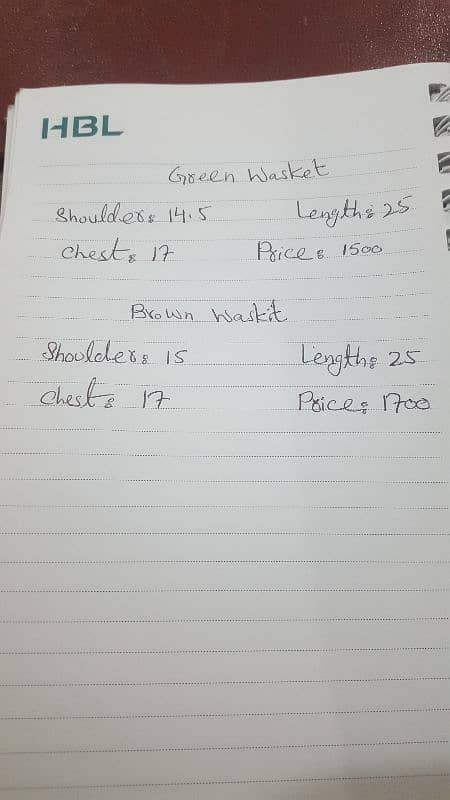 HBL
Green Wasket
Shoulder: 14.5 Length: 25
Chest: 17 Price: 1500
Brown Waskit
Shoulder: 15 Length: 25
Chest: 17 Price: 1700